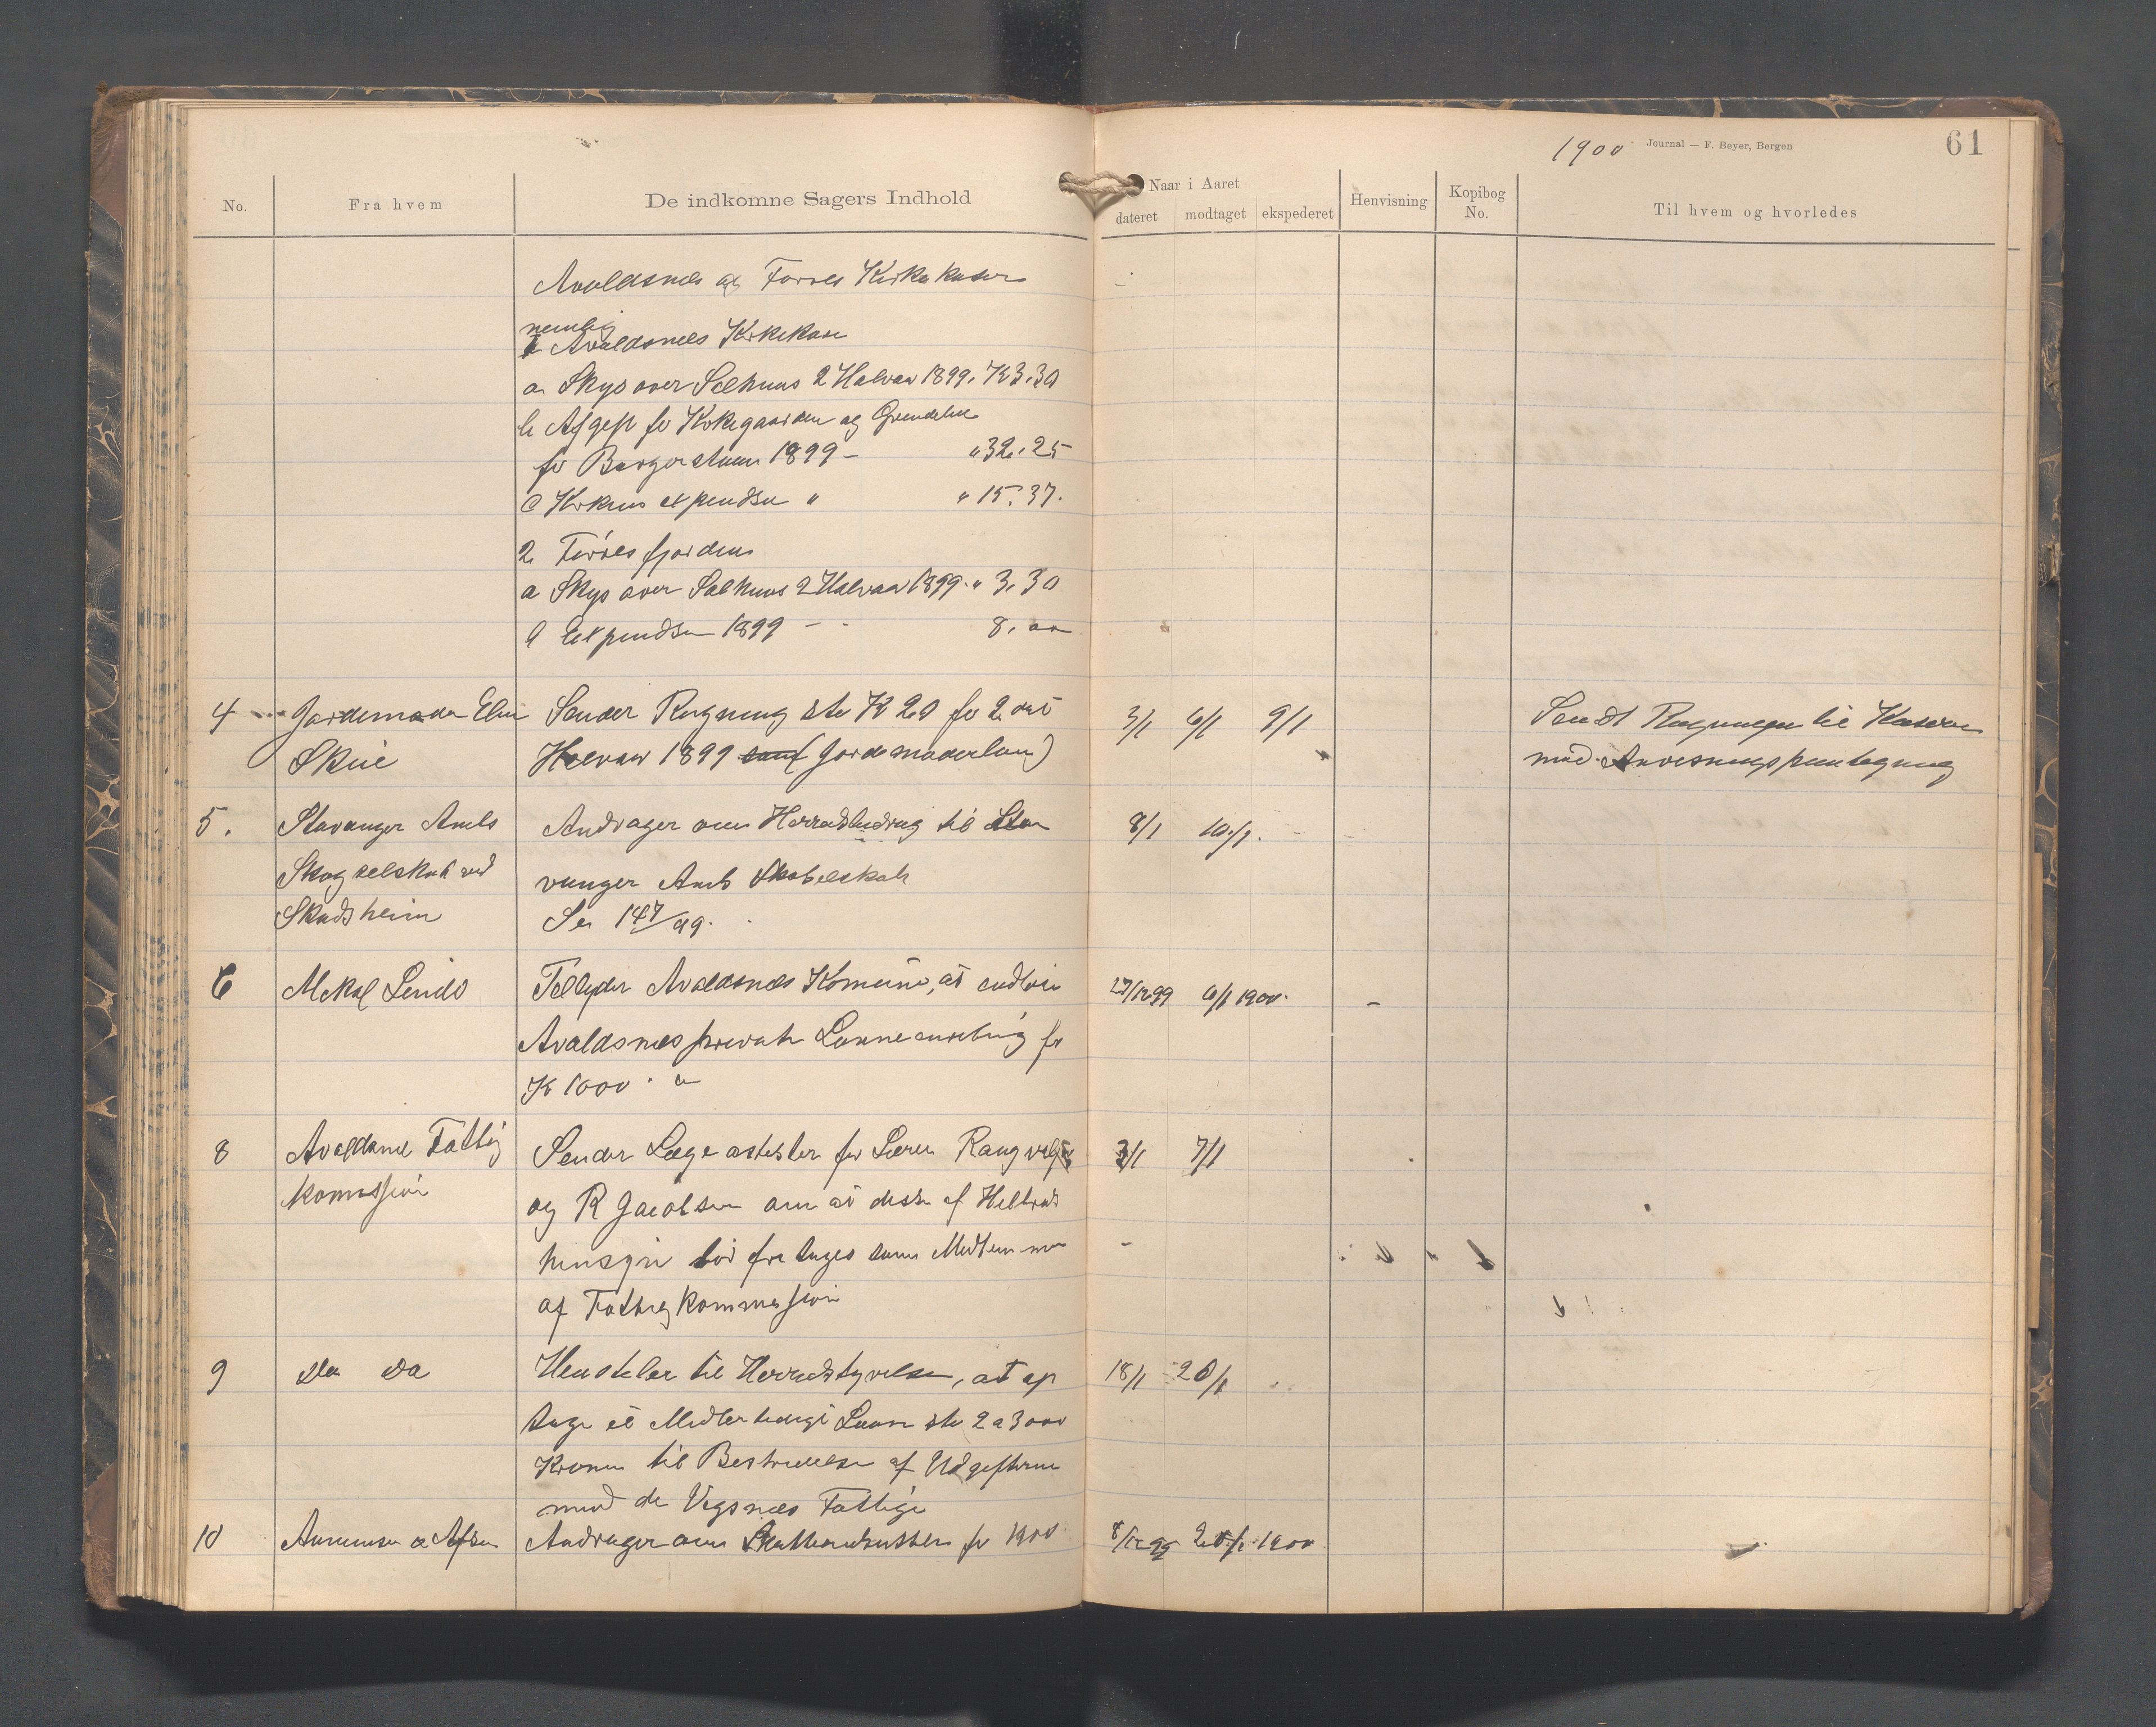 1900 Journal — F. Beyer, Bergen 61
No. Fra hvem De indkomne Sagers Indhold Naar i Aaret dateret modtaget ekspederet Henvisning Kopibog No. Til hvem og hvorledes
Avaldsnes og Førres Kirkekasser
nemlig
1 Avaldsnes Kirkekasse
a Skyds over Salhuus 2 Halvaar 1899. Kr 3.30
b Afgift for Kirkegaarden og
for 1899 – " 32.25
c Kirkens expendser " " 15.37.
2 Førresfjordens
a Skyds over Salhuus 2 Halvaar 1899 . " 3.30
b Expendser 1899 – - 8.00
4 Jordemoder Eline Sender Regning stor Kr 20 for 2det 3/1 6/1 9/1 Sendt Regningen til Kasserer
Skeie Halvaar 1899 (Jordemoderløn) med Anvisningspaategning
5. Stavanger Amts Andrager om Herredsbidrag til Sta 8/1 10/1.
Skogselskab ved
vanger Amts
Skadsheim
Se 147/99.
6 Mikal Lindø Tilbyder Avaldsnes Komune, at indløse 27/12 99 6/1 1900. –
Avaldsnes private Laaneindretning for
Kr 1000
8 Avaldsnes Fattig Sender Lægeattester for Lærer 3/1 7/1
Kommission og R Jacobsen om at disse af Helbreds
hensyn bør fritages som Medlemmer –
af Fattigkommission
9 Do Do Henstiller til Herredstyrelsen, at op 18/1 20/1
tage et Midlertidigt Laan stor 2 a 3000
Kroner til Bestridelse af Udgifterne
med de Vigsnes Fattige
10 Andrager om for 1900 8/12 99 20/1 1900